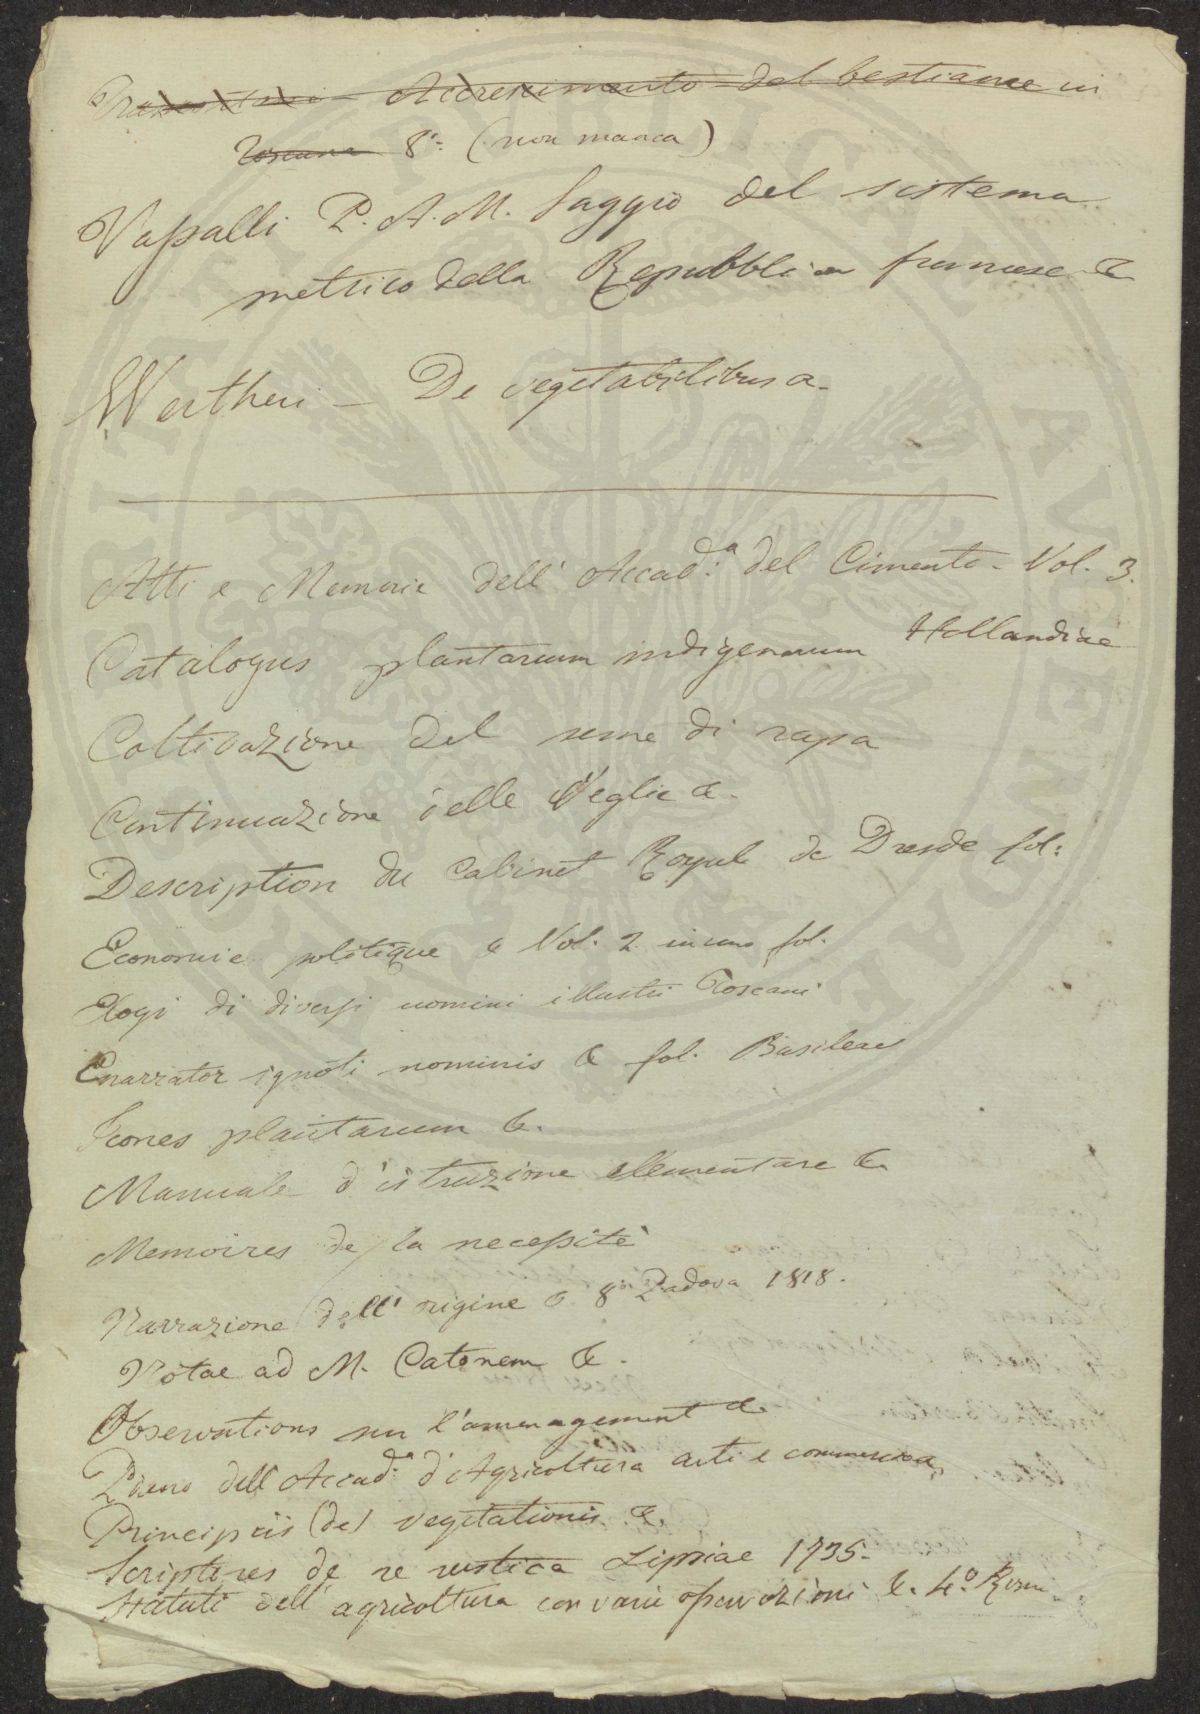 Accrescimento del bestiame in
Toscana 8º: (non manca)
Vassalli P. A. M. Saggio del sistema
metrico della Repubblica francese &
Wertheri – De vegetabilibus &.
Atti e Memorie dell' Accad:ª del Cimento – Vol. 3.
Catalogus plantarum indigenarum Hollandiae
Coltivazione del seme di rapa
Continuazione delle Veglie &.
Description du Cabinet Royale de Dresde fol:
Economie politique & Vol. 2 in uno fol.
Elogi di diversi uomini illustri Toscani
Enarrator ignoti nominis & fol. Basileae
Icones plantarum &.
Manuale d'istruzione elementare &.
Memoires de la necessité
Narrazione dell' origine & 8º Padova 1818.
Notae ad M. Catonem &.
Observations sur l'amenagement &.
Piano dell' Accad:ª d'Agricoltura arti e commercio &.
Principiis (de) vegetationis &.
Scriptores de re rustica Lipsiae 1735.
Statuti dell' agricoltura con varie osservazioni &. 4º. Roma